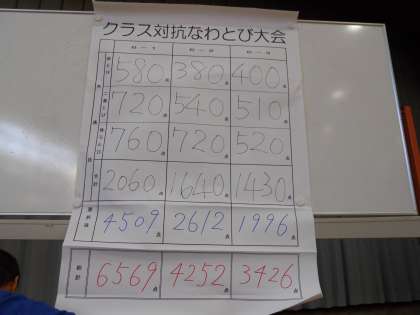 クラス対抗なわとび大会
6-1 6-2 6-3
580点 380点 400点
720点 540点 510点
760点 720点 520点
合計 2060点 1640点 1430点
4509点 2612点 1996点
総計 6569点 4252点 3426点